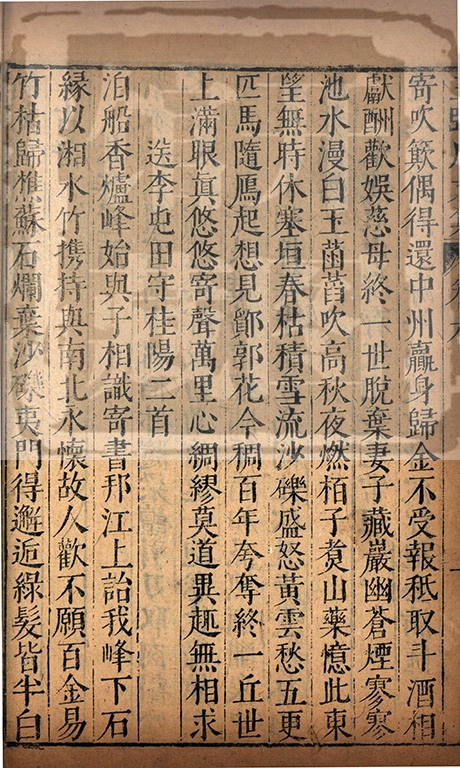 寄吹簌偶得還中州羸身歸金不受報秪取斗酒相
獻酬歡娛慈母終一世脫棄妻子藏巖幽蒼煙寥寥
池水漫白玉菡萏吹高秋夜燃栢子煑山藥憶此東
望無時休塞垣春枯積雪流沙礫盛怒黃雲愁五更
匹馬隨鴈起想見鄮郭花今稠百年夸奪終一丘世
上滿眼眞悠悠寄聲萬里心綢繆莫道異趣無相求
送李屯田守桂陽二首
泊船香爐峰始與子相識寄書邦江上詒我峰下石
緣以湘水竹携持與南北永懷故人歡不願百金易
竹枯歸樵蘇石爛棄沙礫夷門得邂逅綠髮皆半白